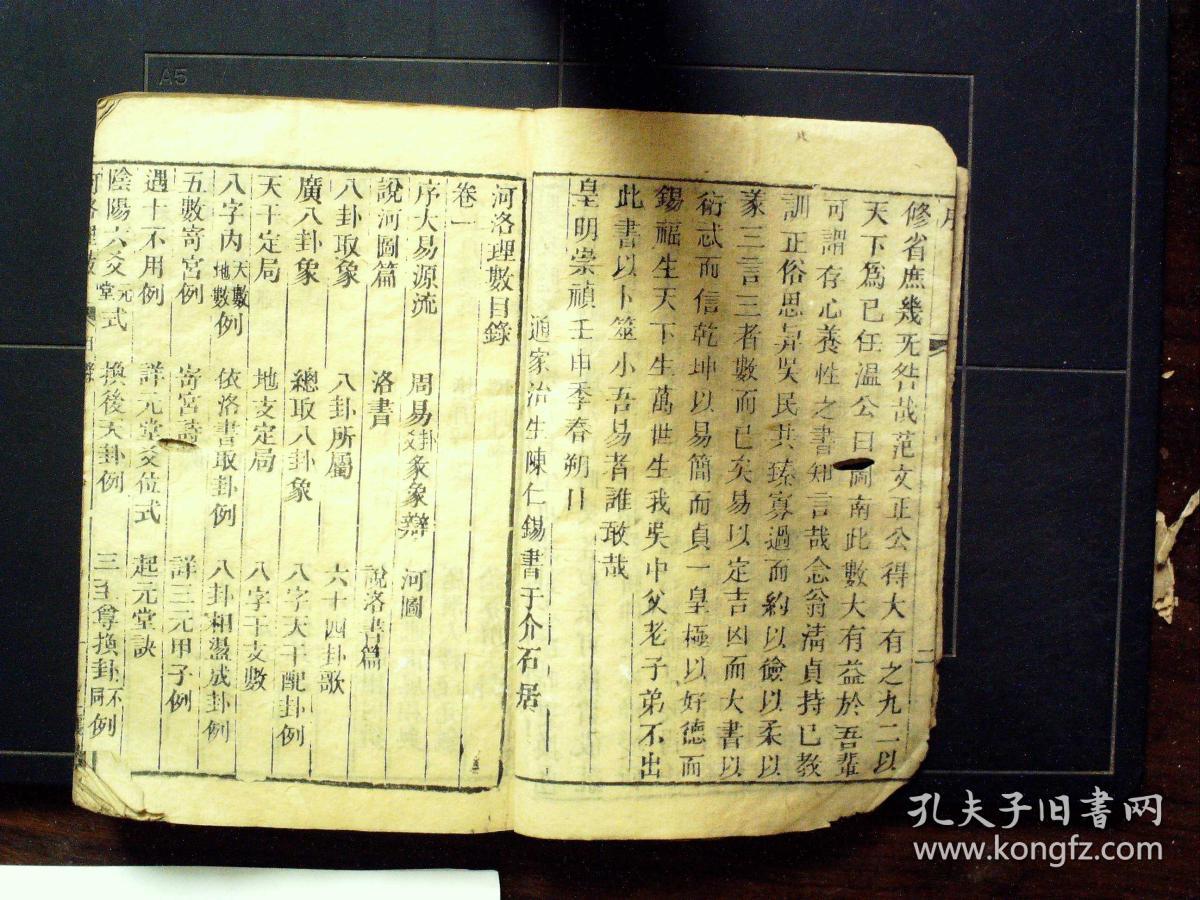 A5
序
二
修省庶幾无咎哉范文正公得大有之九二以
天下為已任溫公曰圖南此數大有益於吾輩
可謂存心養性之書知言哉念翁清貞持已教
訓正俗思與吳民共臻寡過而約以儉以柔以
豕三言三者數而已矣易以定吉凶而大書以
衍忒而信乾坤以易簡而貞一皇極以好德而
錫福生天下生萬世生我吳中父老子弟不出
此書以卜筮小吾易者誰敢哉
皇明崇禎壬申季春朔日
通家治生陳仁錫書于介石居
河洛理數目錄
卷一
序大易源流 周易卦爻彖象辯 河圖
說河圖篇 洛書 說洛書篇
八卦取象 八卦所屬 六十四卦歌
廣八卦象 總取八卦象 八字天干配卦例
天干定局 地支定局 八字干支數
八字內天數地數例 依洛書取卦例 八卦相盪成卦例
五數寄宮例 寄宮詩 詳三元甲子例
遇十不用例 詳元堂爻位式 起元堂訣
陰陽六爻元堂式 換後天卦例 三至尊換卦不同例
河洛理數 目錄
孔夫子旧書网
www.kongfz.com